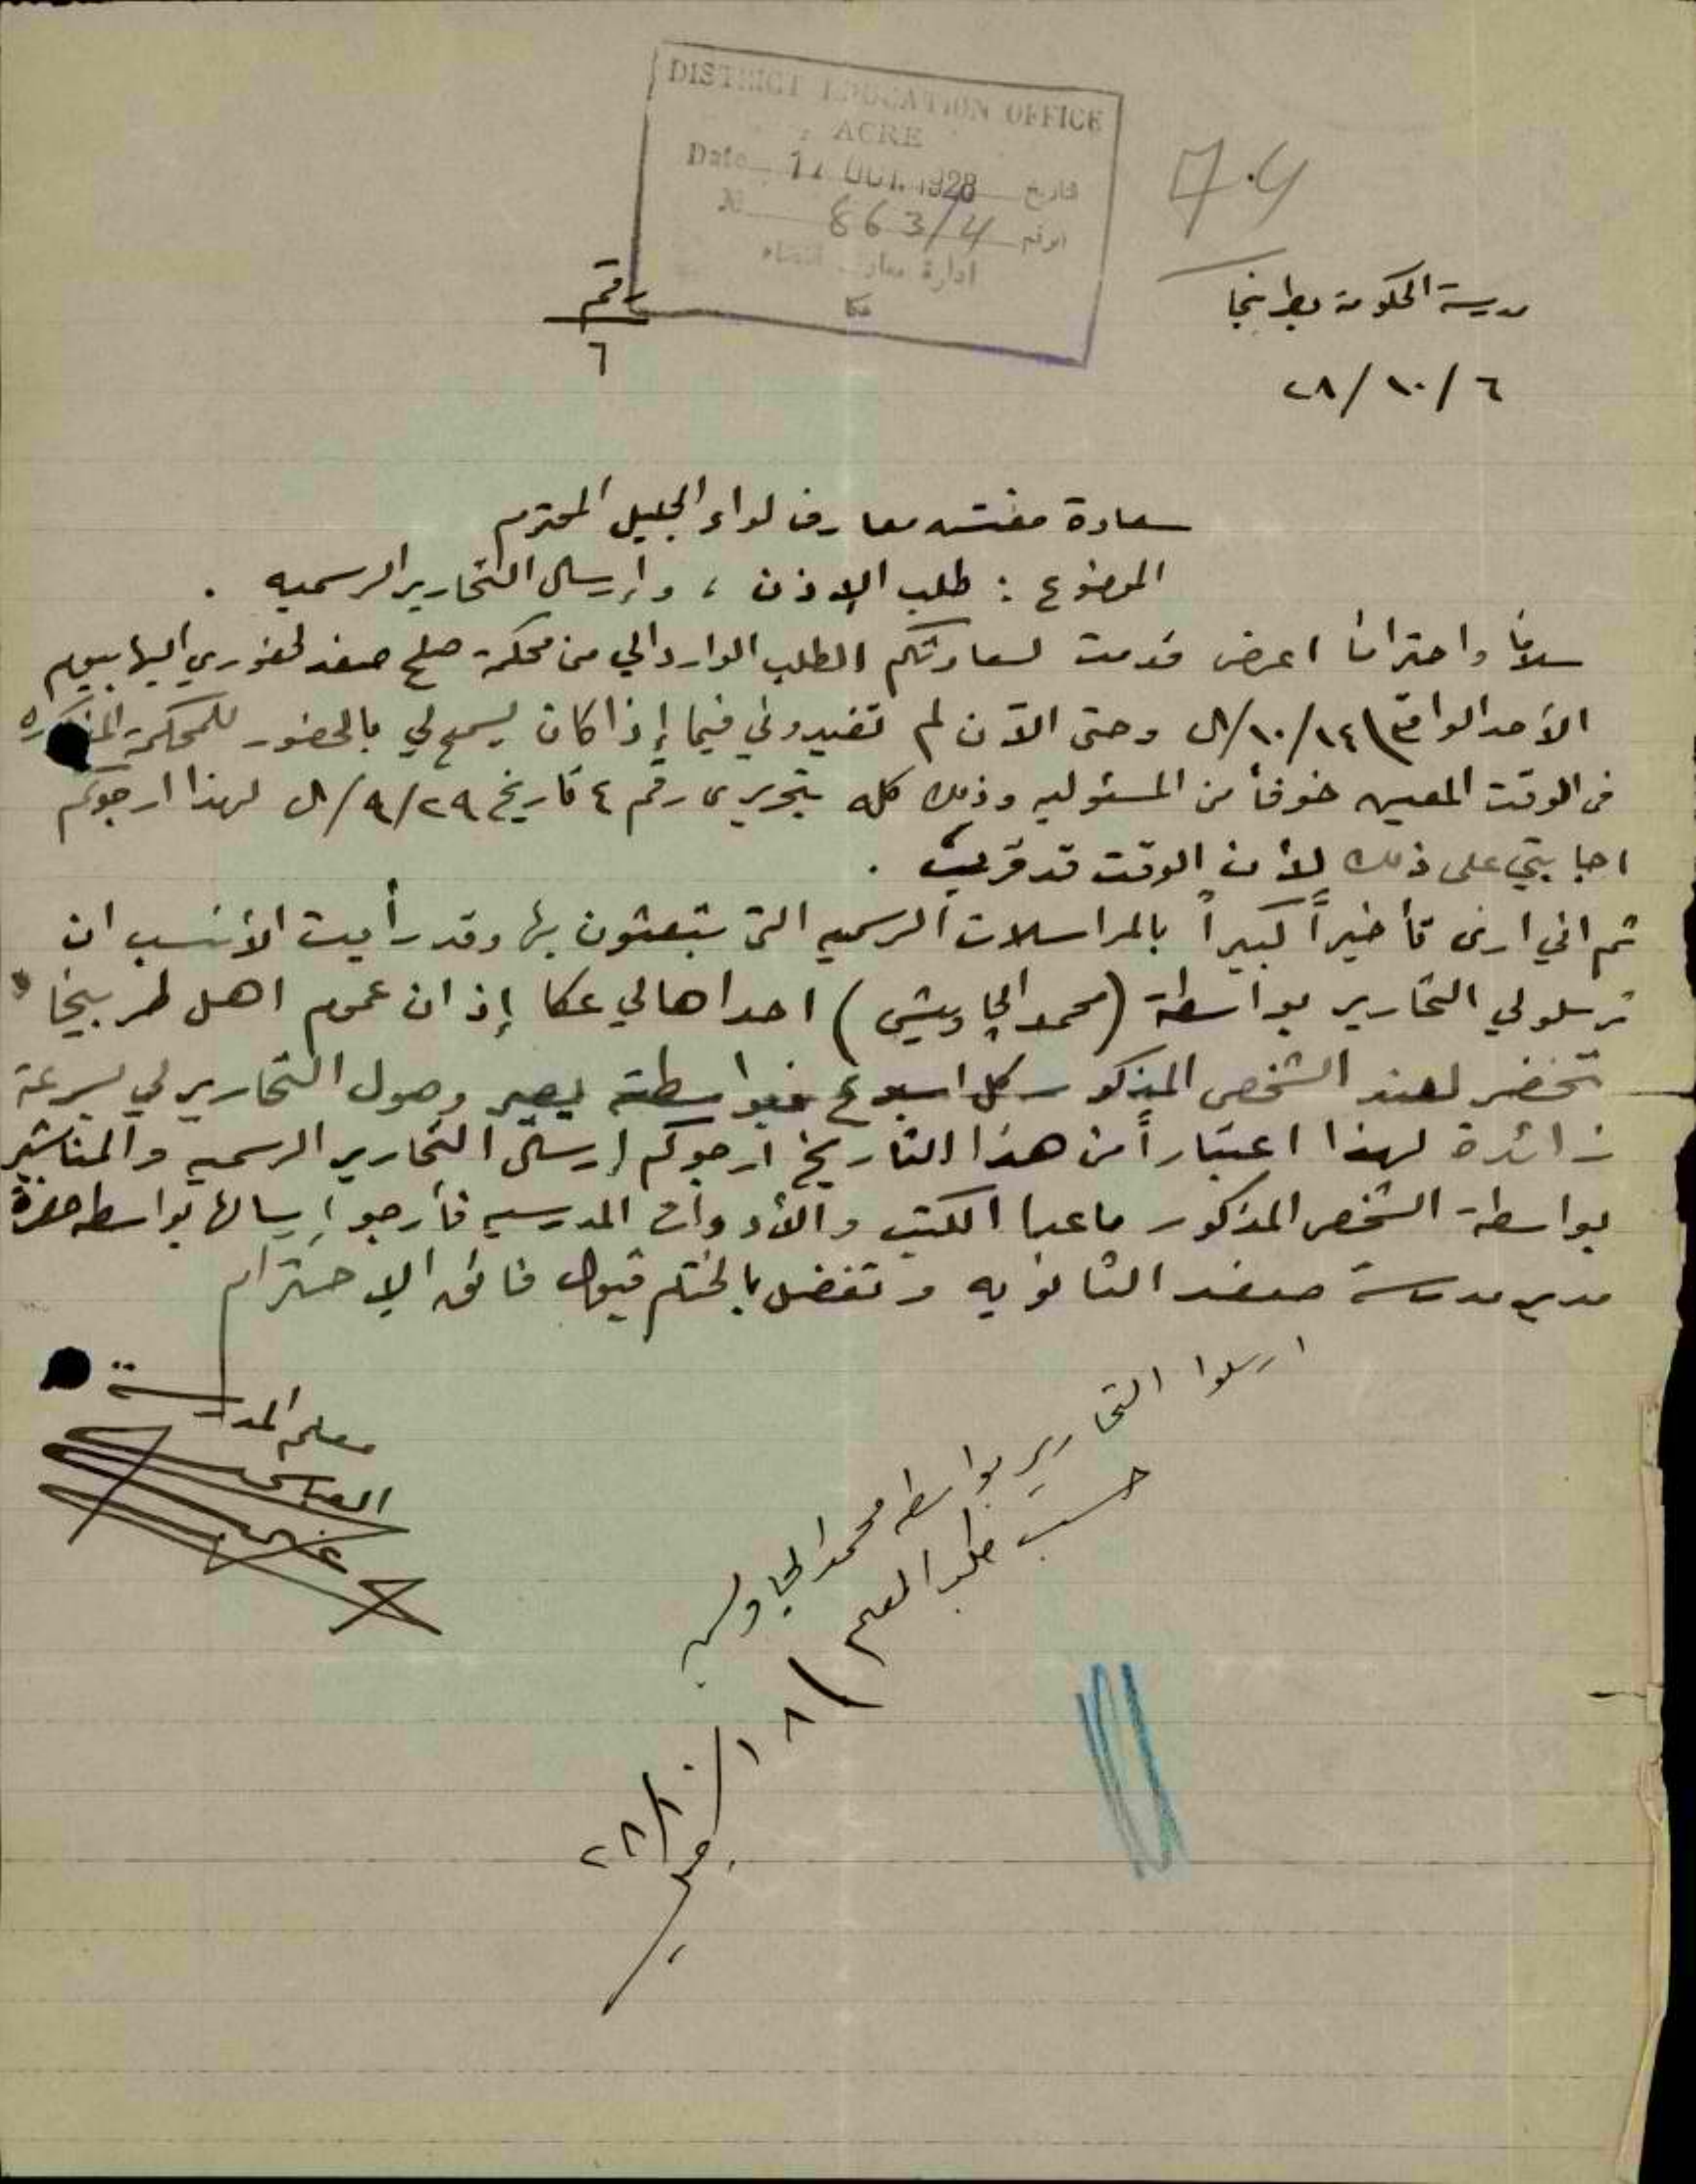 DISTRICT EDUCATION OFFICE
ACRE
Date 11 OCT. 1928 تاريخ
No 863/4 الرقم
ادارة معارف القضاء
عكا
7.4
مدرسة الحكومة بطربيخا
٦/١٠/٢٨
رقم
٦
سعادة مفتش معارف لواء الجليل المحترم
الموضوع : طلب الإذن ، وإرسال التحارير الرسميه .
سلاماً واحتراماً اعرض قدمت لسعادتكم الطلب الوارد الي من محكمة صلح صفد لحضوري اليها بيوم
الأحد الواقع ١٤/١٠/٢٨ وحتى الآن لم تفيدوني فيما إذا كان يسمح لي بالحضور للمحكمة المذكوره
في الوقت المعين خوفاً من المسئوليه وذلك كله بتحريري رقم ٤ تاريخ ٢٩/٩/٢٨ لهذا ارجوكم
اجابتي على ذلك لأن الوقت قد قرب .
ثم اني ارى تأخيراً كبيراً بالمراسلات الرسميه التي تبعثون بها وقد رأيت الأنسب ان
ترسلو لي التحارير بواسطة (محمد الجاويش) احد اهالي عكا إذ ان عموم اهل طربيخا
تحضر لعند الشخص المذكور كل اسبوع فبواسطته يصير وصول التحارير لي بسرعة
زائدة لهذا اعتباراً من هذا التاريخ ارجوكم إرسال التحارير الرسميه والمناشير
بواسطة الشخص المذكور ماعدا الكتب والأدوات المدرسيه فأرجو إرسالها بواسطه حضرة
مدير مدرسة صفد الثانويه وتفضل بالختام قبول فائق الإحترام
معلم المدرسة
ارسلوا التحارير بواسطه محمد الجاويش
حسب طلب المعلم
١٨/١٠/٢٨